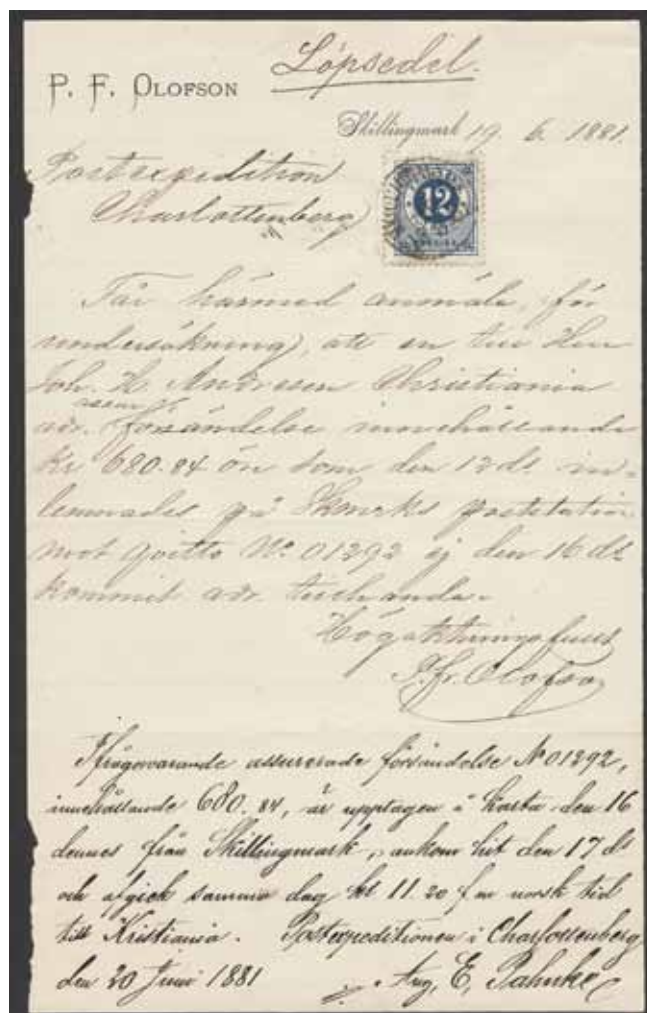 Löpsedel.
P. F. OLOFSON
Skillingmark 19. 6. 1881.
Postexpedition
Charlottenberg
12
Får härmed anmäla, för
undersökning, att en till Herr
Joh. H. Andresen Christiania
assur.
adr. försändelse innehållande
Kr 680.84 öre som den 12 ds in-
lemnades på Skmrks poststation
mot qvitto No. 01292 ej den 16 ds
kommit adr. tillhanda.
Högaktningsfullt
P. Fr. Olofson
Ifrågavarande assurerade försändelse No 01292,
innehållande 680. 84, är upptagen å Karta den 16
dennes från Skillingmark, ankom hit den 17 ds
och afgick samma dag kl 11. 20 f m norsk tid
till Kristiania. Postexpeditionen i Charlottenberg
den 20 Juni 1881 Aug. E. Pahnke